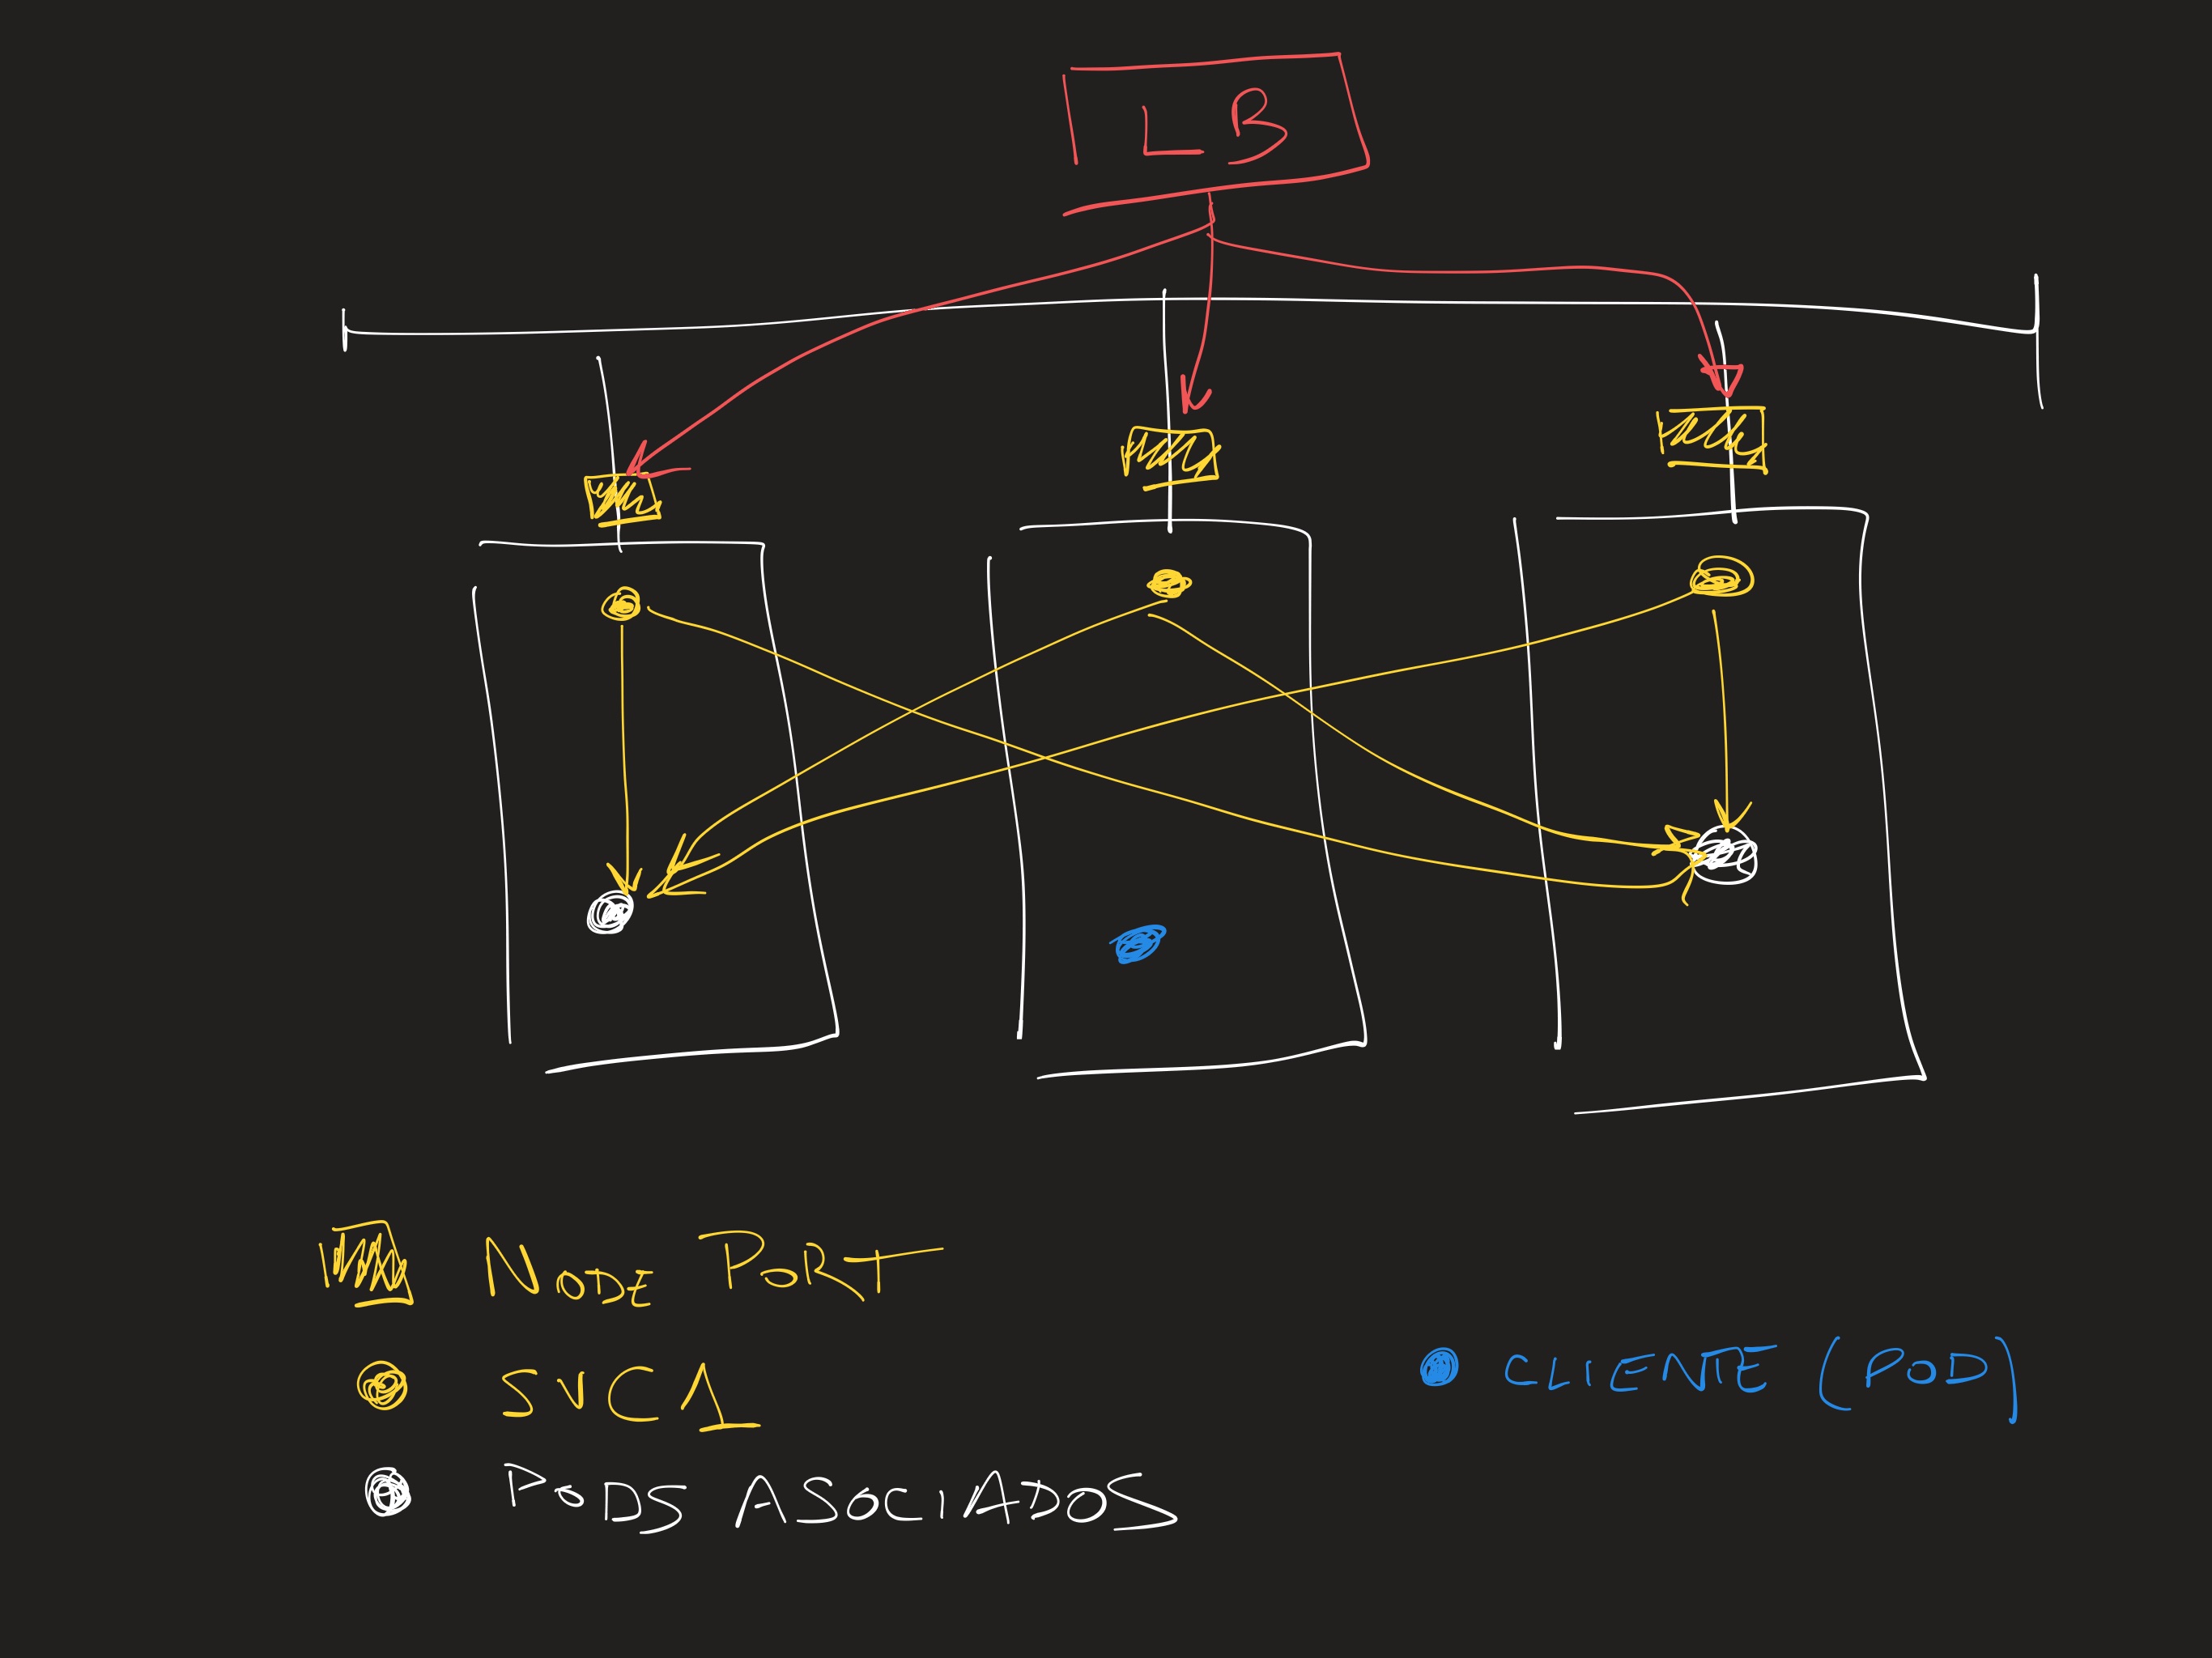 LB
NODE PORT
SVC1
PODS ASOCIADOS
CLIENTE (POD)